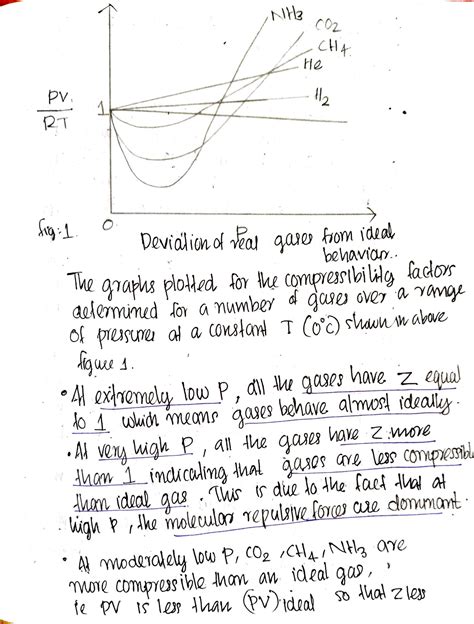 NH3
CO2
CH4
He
H2
PV
RT
1
O
P
fig:1
Deviation of real gases from ideal
behaviour.
The graphs plotted for the compressibility factors
determined for a number of gases over a range
of pressures at a constant T (0°C) shown in above
figure 1.
• At extremely low P, all the gases have Z equal
to 1 which means gases behave almost ideally.
• At very high P, all the gases have Z more
than 1 indicating that gases are less compressible
than ideal gas. This is due to the fact that at
high P, the molecular repulsive forces are dominant.
• At moderately low P, CO2, CH4, NH3 are
more compressible than an ideal gas,
ie PV is less than (PV)ideal so that Z less